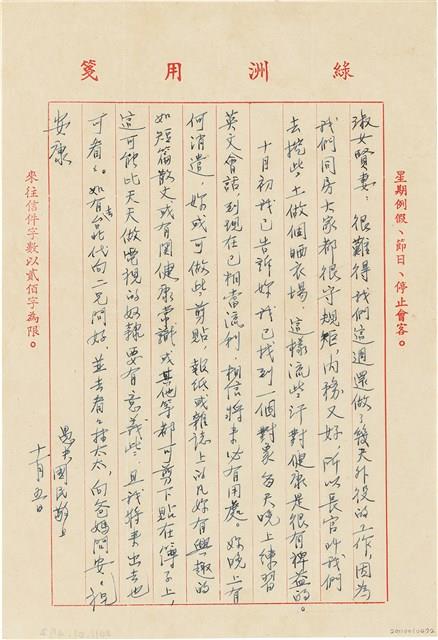 綠洲用箋
星期例假、節日、停止會客。
淑女賢妻：很難得我們這週還做了幾天外役的工作，因為
我們同房大家都很守規矩，內務又好，所以長官叫我們
去挖些土做個晒衣場，這樣流些汗對健康是很有裨益的。
十月初我已告訴妳我已找到一個對象每天晚上練習
英文會話，到現在已相當流利，相信將來必有用處。妳晚上有
何消遣，妳或可做些剪貼，報紙或雜誌上的凡妳有興趣的
如短篇散文或有関健康常識或其他等都可剪下貼在簿子上，
這可能比天天做電視的奴隸要有意義些，且我將來出去也
可看看。如有去台北代向二兄問好，並去看看李太太，向爸媽問安。祝
安康
愚夫國民敬上
十月五日
來往信件字數以貳佰字為限。